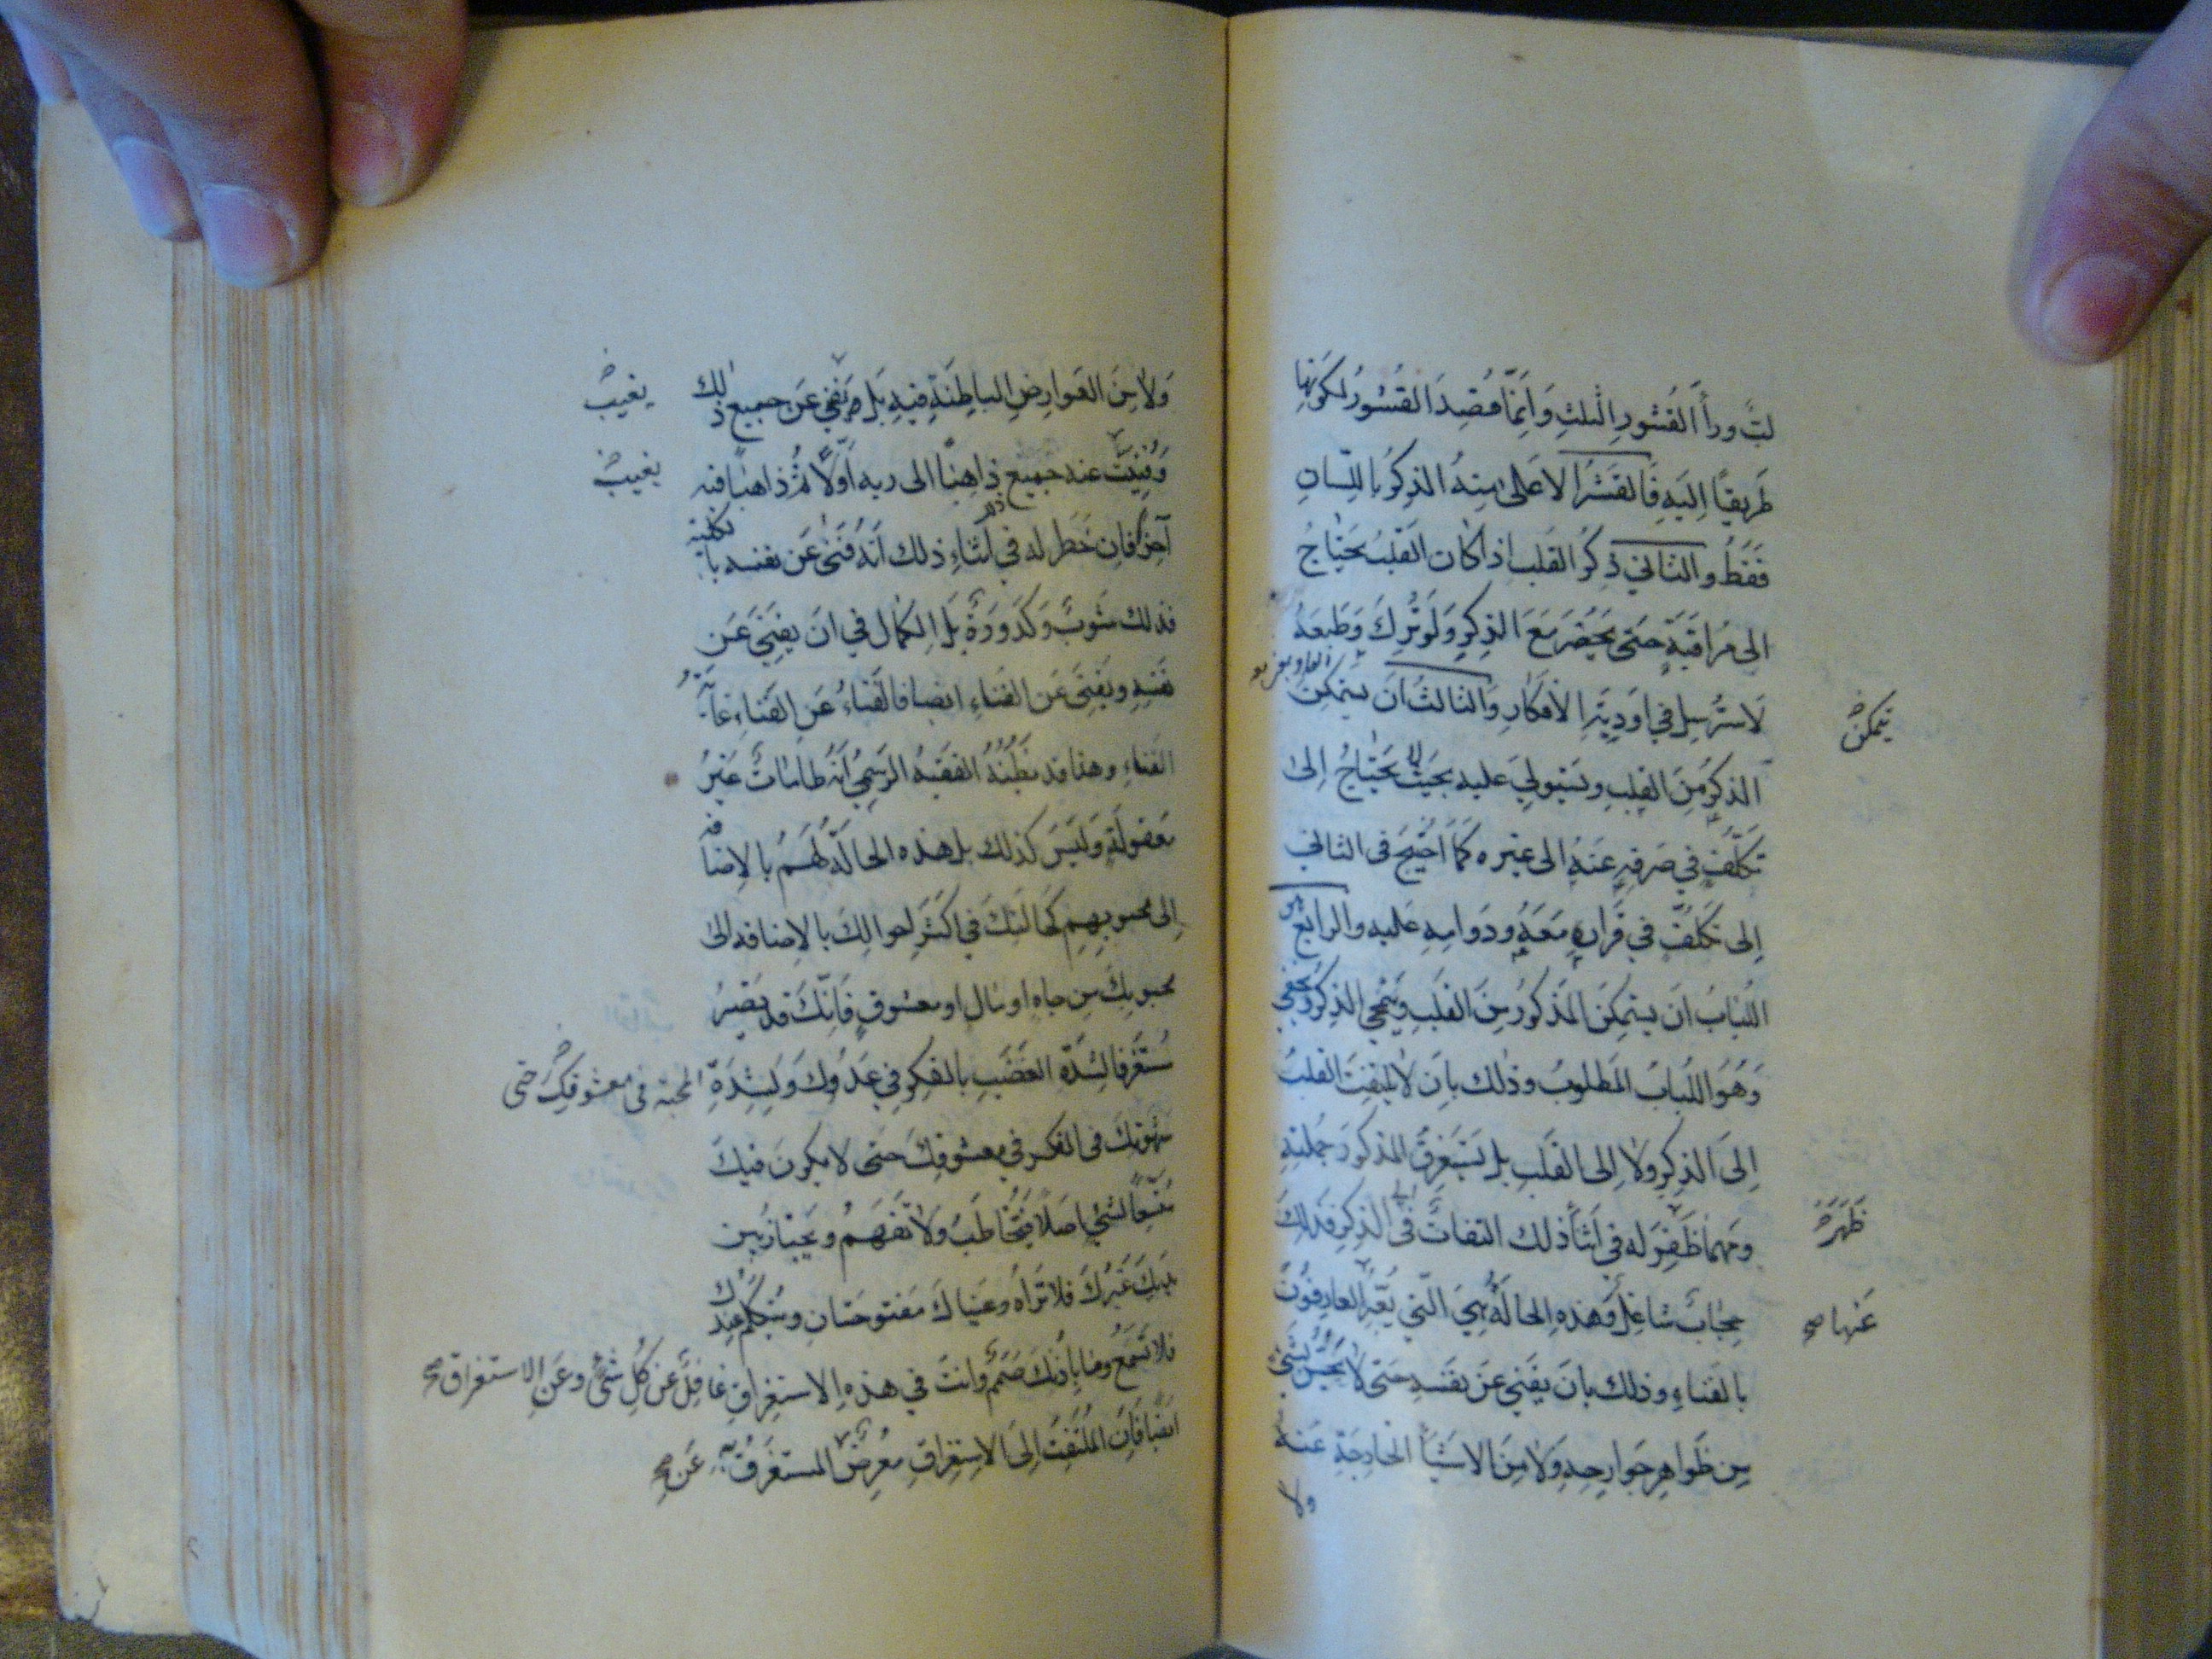 لبّ ورأ القشور الثلث وانما قصد القشور لكونها
طريقًا اليه فالقشر الاعلى منه الذكر باللسان
فقط والثاني ذكر القلب اذا كان القلب يحتاج
الى مراقبة حتى يحضر مع الذكر ولو ترك وطبعه
لاسترسل في اودية الافكار والثالث ان يتمكن
يتمكن
الذكر من القلب ويستولي عليه بحيث لا يحتاج الى
تكلف في صرفه عنه الى غيره كما احتيج في الثاني
الى تكلف في قراره معه ودوامه عليه والرابع
اللباب ان يتمكن المذكور من القلب وينمحي الذكر ويخفى
وهو اللباب المطلوب وذلك بان لا يلتفت القلب
الى الذكر ولا الى القلب بل يستغرق المذكور جملته
ومهما ظفر له في اثنأ ذلك التفات في الذكر فذلك
ظهر
حجاب شاغل وهذه الحالة هي التي يعبر العارفون
عنها صح
بالفناء وذلك بان يفنى عن نفسه حتى لا يحس بشئ
من ظواهر جوارحه ولا من الاشيأ الخارجة عنه
ولا
ولا من العوارض الباطنة فيه بل يفنى عن جميع ذلك
يغيب
وفنيت عنه جميع ذلك ذاهبا الى ربه اولًا ثم ذاهبا فيه
يغيب
آخرًا فان خطر له في اثناء ذلك انه فنى عن نفسه بالكلية
فذلك شوب وكدورة بل الكمال في ان يفنى عن
نفسه ويفنى عن الفناء ايضا فالفناء عن الفناء غاية
الفناء وهذا قد يظنه الفقيه الرسمي انه طامات غير
معقولة وليس كذلك بل هذه الحالة لهم بالاضافة
الى محبوبهم كحالتك في اكثر احوالك بالاضافة الى
محبوبك من جاه او مال او معشوق فانك قد تصير
مستغرقا لشدة الغضب بالفكر في عدوك ولشدة المحبة في معشوقك حتى
شهوتك في الفكر في معشوقك حتى لا يكون فيك
متسعًا لشئ اصلا فتخاطب ولا تفهم ويجتاز بين
يديك غيرك فلا تراه وعيناك مفتوحتان ويتكلم عندك
فلا تسمع وما باذنك صمم وانت في هذه الاستغراق غافل عن كل شئ وعن الاستغراق صح
ايضًا فان الملتفت الى الاستغراق معرض المستغرق به عن صح